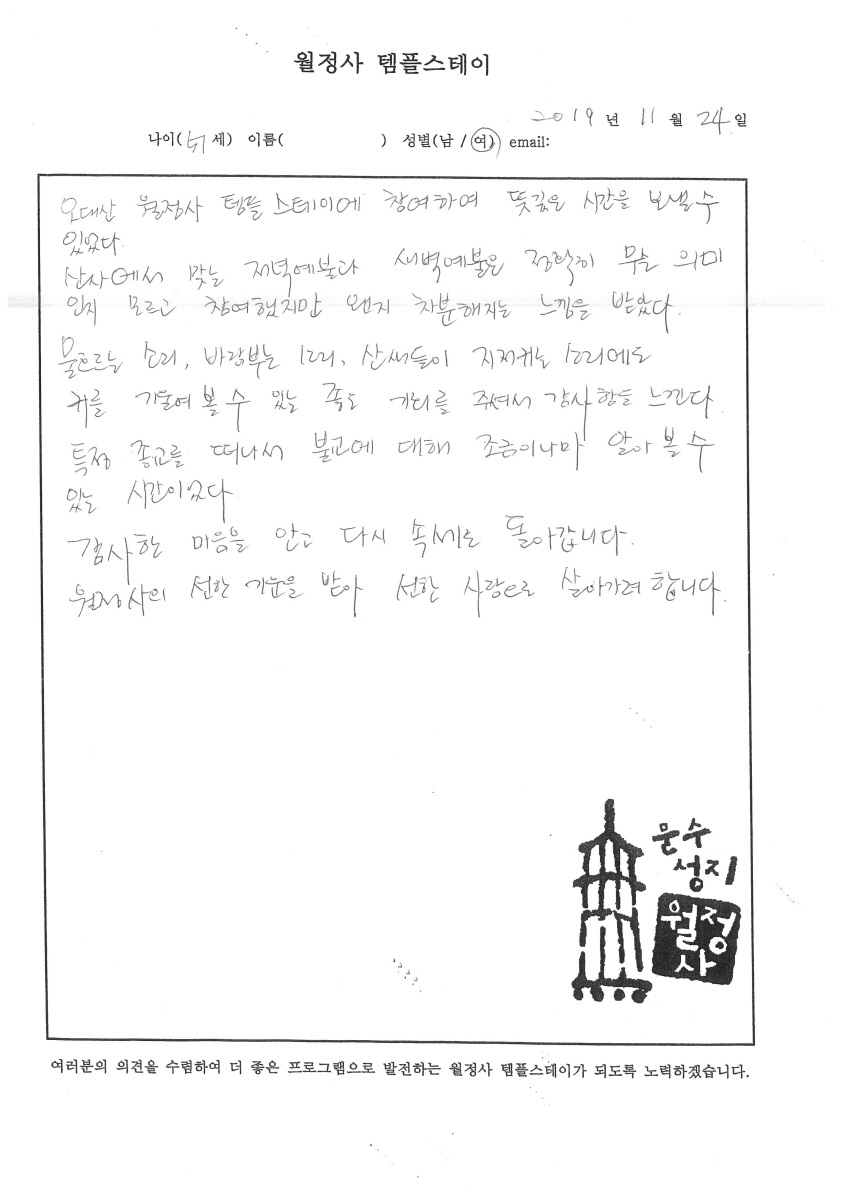 월정사 템플스테이
2019 년 11 월 24 일
나이( 세) 이름( ) 성별(남 / 여) email:
오대산 월정사 템플 스테이에 참여하여 뜻깊은 시간을 보낼 수
있었다.
산사에서 맞는 저녁예불과 새벽예불은 정확히 무슨 의미
인지 모르고 참여했지만 왠지 차분해지는 느낌을 받았다.
물흐르는 소리, 바람부는 소리, 산새들이 지저귀는 소리에도
귀를 기울여 볼 수 있는 기회를 주셔서 감사함을 느낀다
특정 종교를 떠나서 불교에 대해 조금이나마 알아 볼 수
있는 시간이었다
감사한 마음을 안고 다시 속세로 돌아갑니다.
월정사의 선한 기운을 받아 선한 사람으로 살아가려 합니다.
문수
성지
월정
사
여러분의 의견을 수렴하여 더 좋은 프로그램으로 발전하는 월정사 템플스테이가 되도록 노력하겠습니다.